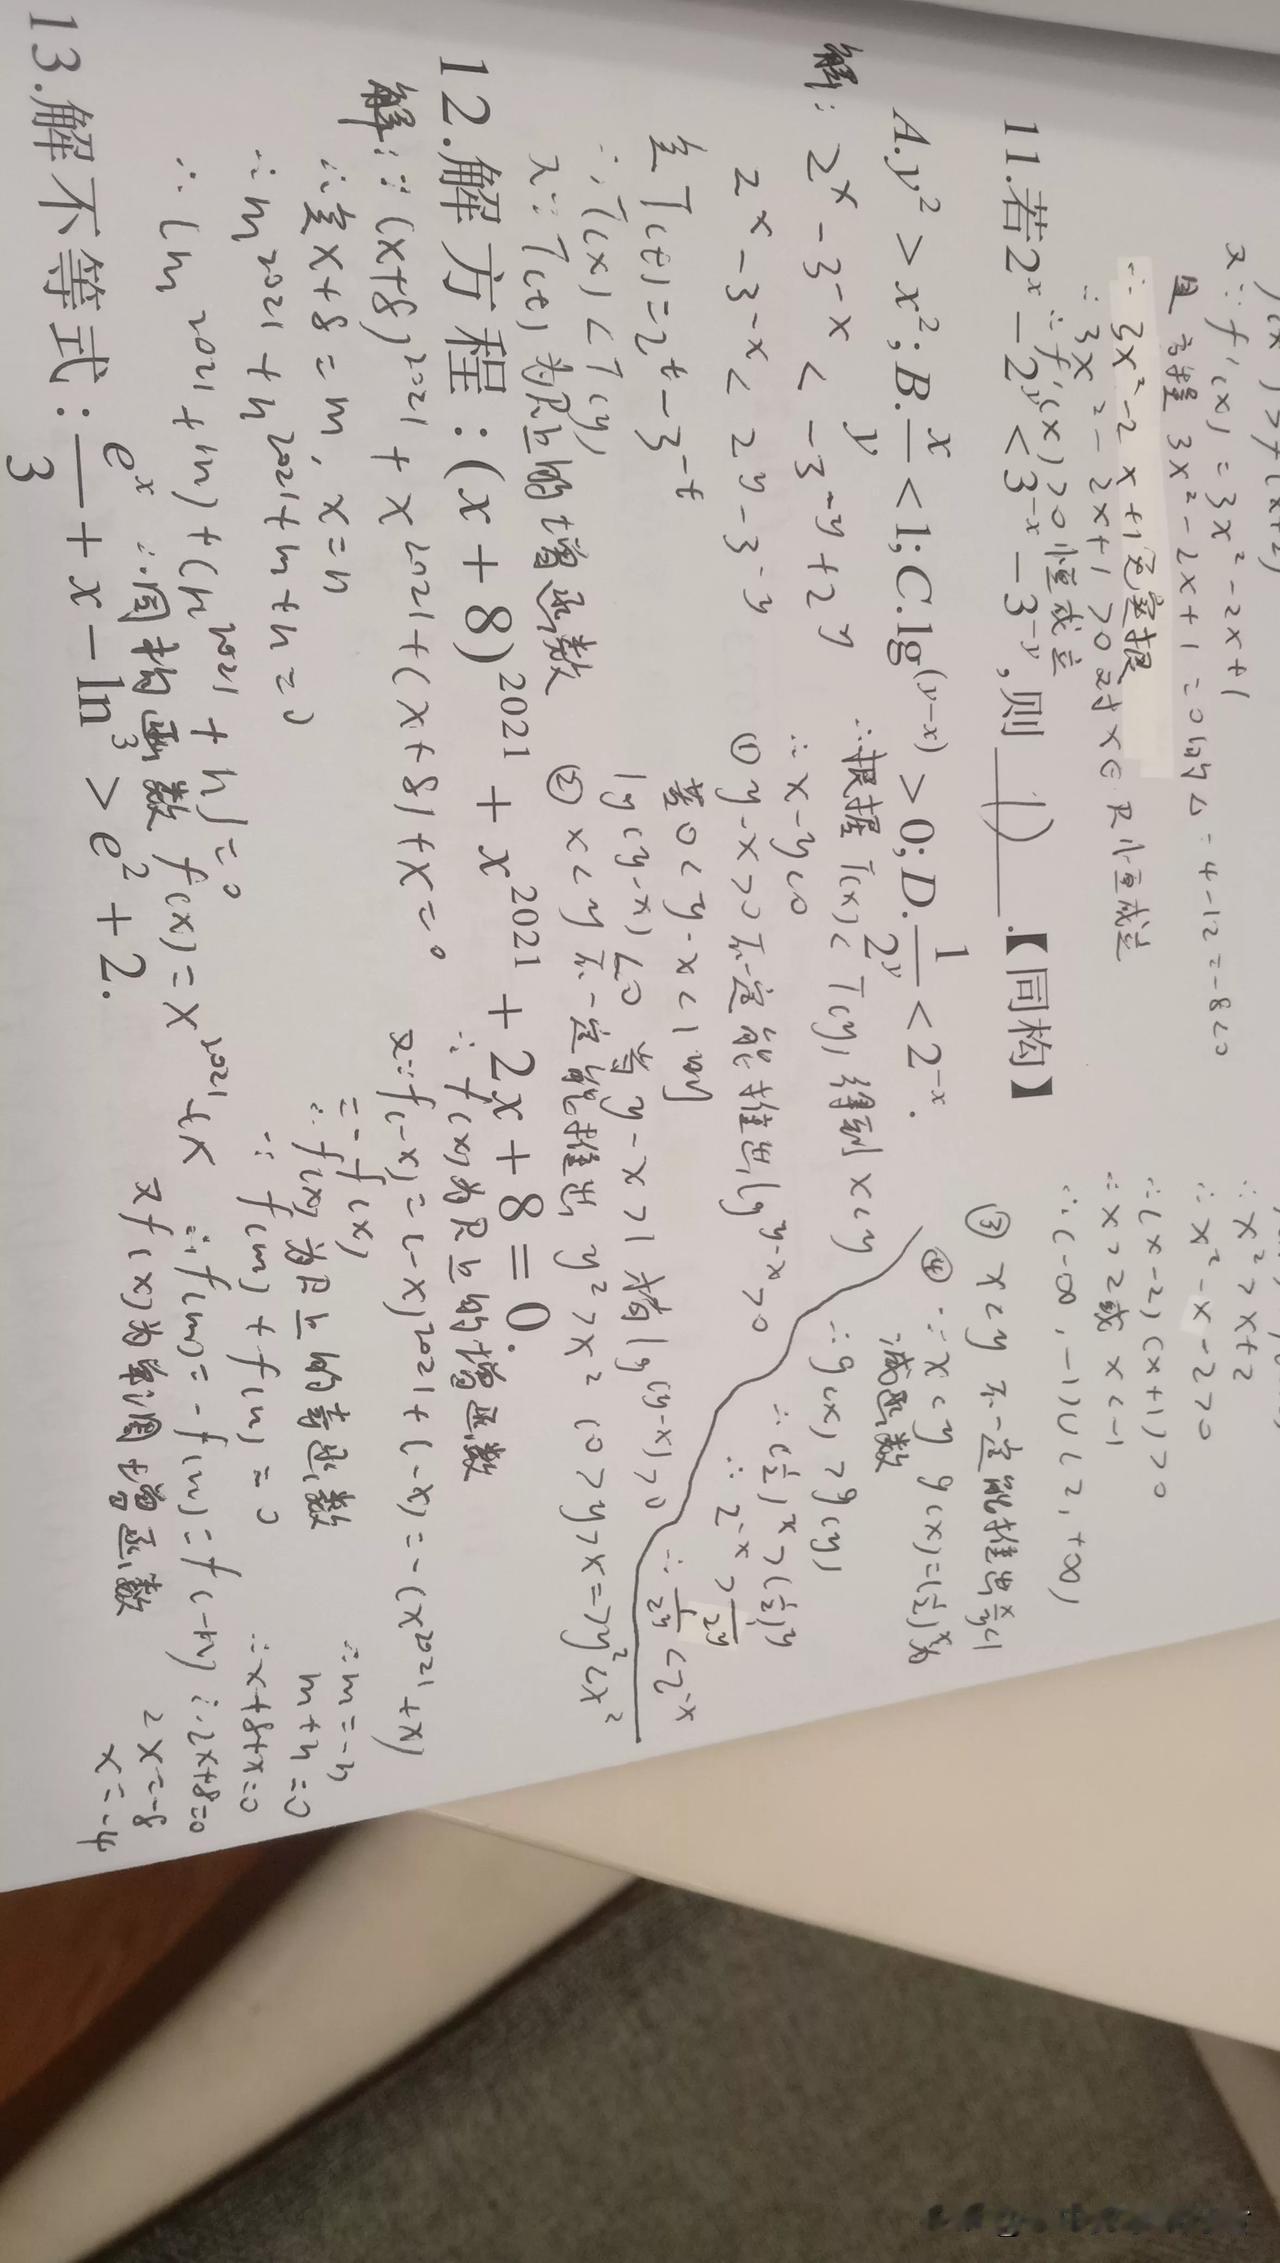 又∵f'(x)=3x²-2x+1
且方程3x²-2x+1=0的△=4-12=-8<0
∴3x²-2x+1无实根
∴3x²-2x+1>0对x∈R恒成立
∴f'(x)>0恒成立
∴x²>x+2
∴x²-x-2>0
∴(x-2)(x+1)>0
∴x>2或x<-1
∴(-∞,-1)∪(2,+∞)
11.若2ˣ-2ʸ<3⁻ˣ-3⁻ʸ,则 D .【同构】
A.y²>x²;B.x/y<1;C.lg^(y-x)>0;D.1/2ʸ<2⁻ˣ.
解:2ˣ-3⁻ˣ<-3⁻ʸ+2ʸ
2ˣ-3⁻ˣ<2ʸ-3⁻ʸ
T(t)=2ᵗ-3⁻ᵗ
∴T(x)<T(y)
又∵T(t)为R上的增函数
∴根据T(x)<T(y)得到x<y
∴x-y<0
①y-x>0不一定能推出lg^(y-x)>0
若0<y-x<1时
lg(y-x)<0 若y-x>1才有lg^(y-x)>0
②x<y不一定能推出y²>x²(0>y>x=>y²<x²
③x<y不一定能推出x/y<1
④∵x<y g(x)=(1/2)ˣ为
减函数
∴g(x)>g(y)
∴(1/2)ˣ>(1/2)ʸ
∴2⁻ˣ>1/2ʸ
∴1/2ʸ<2⁻ˣ
12.解方程:(x+8)²⁰²¹+x²⁰²¹+2x+8=0.
解:∵(x+8)²⁰²¹+x²⁰²¹+(x+8)+x=0
∴令x+8=m,x=n
∴m²⁰²¹+n²⁰²¹+m+n=0
∴(m²⁰²¹+m)+(n²⁰²¹+n)=0
∴同构函数f(x)=x²⁰²¹+x
∴f(x)为R上的增函数
又∵f(-x)=(-x)²⁰²¹+(-x)=-(x²⁰²¹+x)
=-f(x)
∴f(x)为R上的奇函数
∵f(m)+f(n)=0
∴f(m)=-f(n)=f(-n)
又f(x)为单调增函数
∴m=-n
m+n=0
∴x+8+x=0
∴2x+8=0
2x=-8
x=-4
13.解不等式:eˣ/3+x-ln³>e²+2.